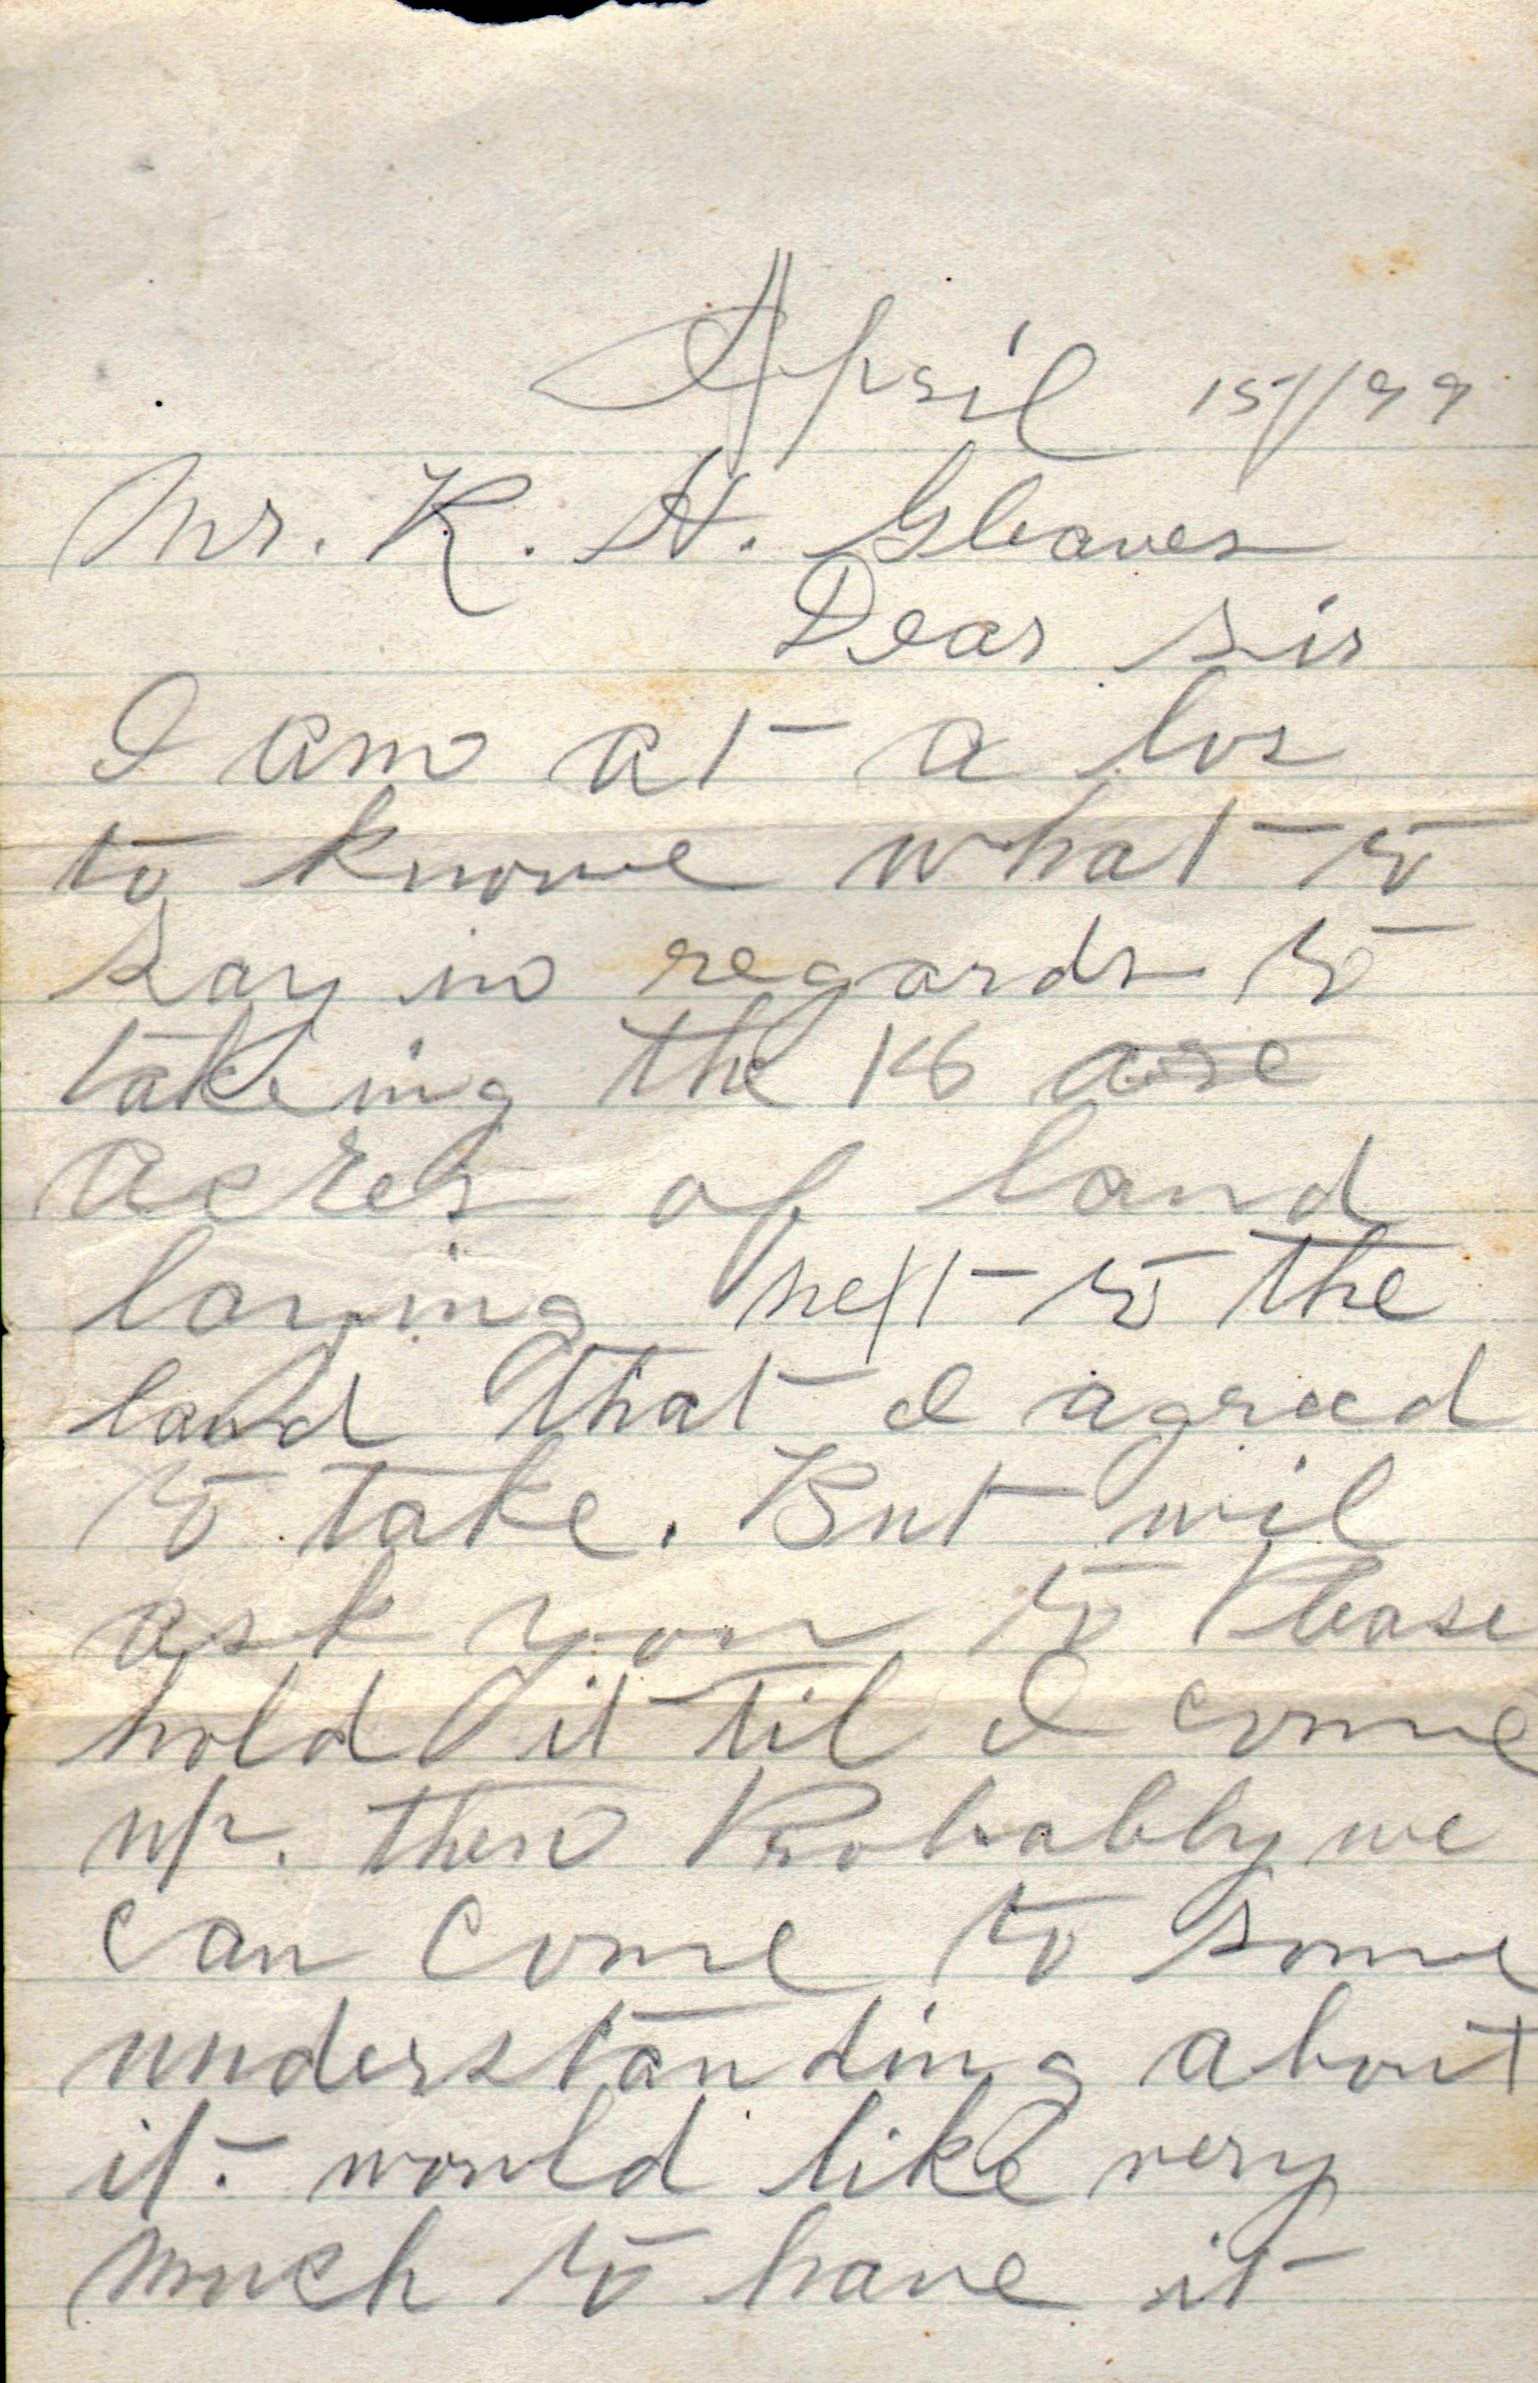 April 15//99
Mr. K. H. Gleaves
Dear sir
I am at a los
to knowe what to
say in regards to
takeing the 16 are
acres of land
laying next to the
land that I agreed
to take. But wil
ask you to Please
hold it til I come
up. then Probably we
can come to some
understanding about
it. would like very
much to have it